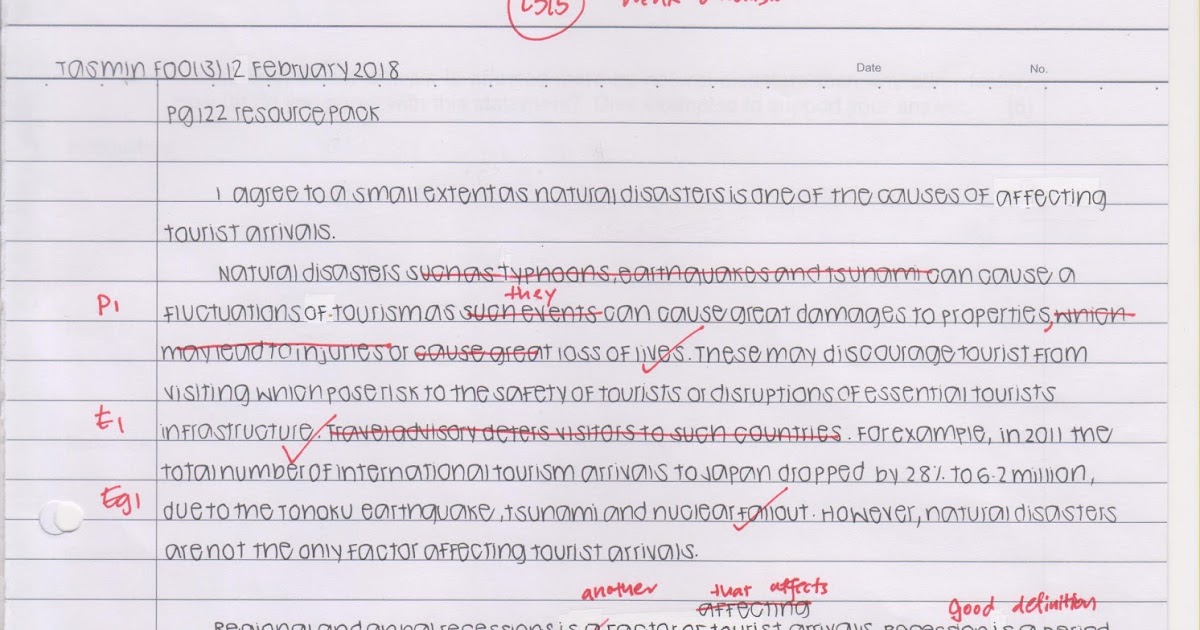 Tasmin Foo (3) 12 February 2018
Date No.
Pg 122 resource pack
I agree to a small extent as natural disasters is one of the causes of affecting
tourist arrivals.
Natural disasters such as typhoons, earthquakes and tsunami can cause a
they
P1 fluctuations of tourism as such events can cause great damages to properties, which
may lead to injuries or cause great loss of lives. These may discourage tourist from
visiting which pose risk to the safety of tourists or disruptions of essential tourists
E1 infrastructure. Travel advisory deters visitors to such countries. For example, in 2011 the
total number of international tourism arrivals to Japan dropped by 28% to 6.2 million,
Eg1 due to the Tohoku earthquake, tsunami and nuclear fallout. However, natural disasters
are not the only factor affecting tourist arrivals.
another that affects good definition
affecting
Regional and global recessions is a factor of tourist arrivals. Recession is a period